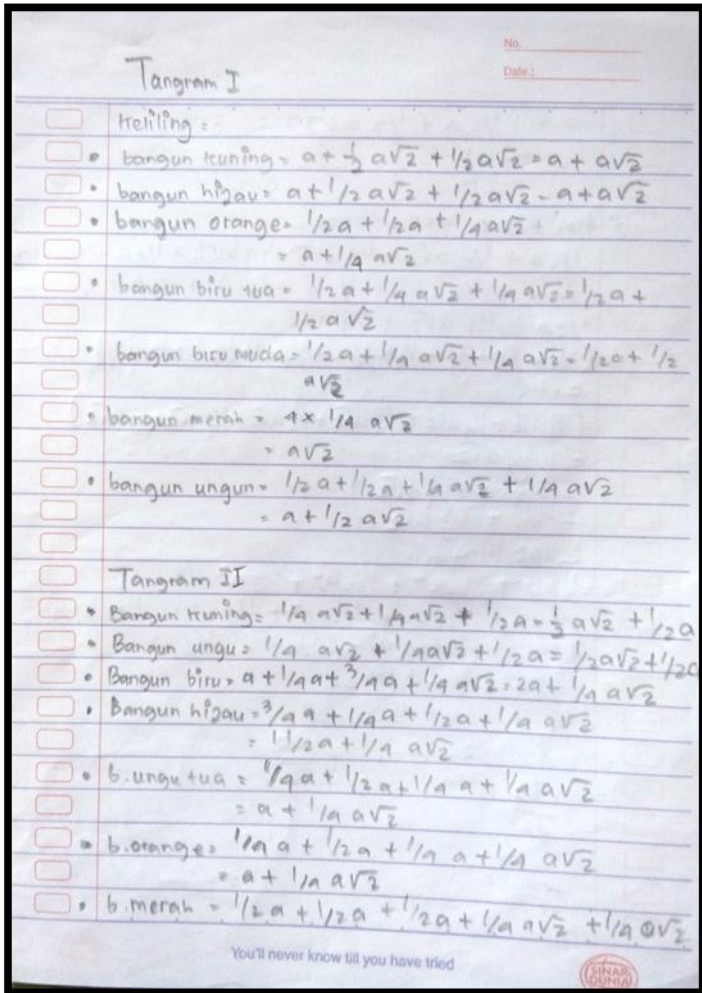 No.
Date :
Tangram I
Keliling =
• bangun kuning = a + 1/2 a√2 + 1/2 a√2 = a + a√2
• bangun hijau = a + 1/2 a√2 + 1/2 a√2 = a + a√2
• bangun orange = 1/2 a + 1/2 a + 1/4 a√2
= a + 1/4 a√2
• bangun biru tua = 1/2 a + 1/4 a√2 + 1/4 a√2 = 1/2 a +
1/2 a√2
• bangun biru muda = 1/2 a + 1/4 a√2 + 1/4 a√2 = 1/2 a + 1/2
a√2
• bangun merah = 4 x 1/4 a√2
= a√2
• bangun ungun = 1/2 a + 1/2 a + 1/4 a√2 + 1/4 a√2
= a + 1/2 a√2
Tangram II
• Bangun kuning = 1/4 a√2 + 1/4 a√2 + 1/2 a = 1/2 a√2 + 1/2 a
• Bangun ungu = 1/4 a√2 + 1/4 a√2 + 1/2 a = 1/2 a√2 + 1/2 a
• Bangun biru = a + 1/4 a + 3/4 a + 1/4 a√2 = 2a + 1/4 a√2
• Bangun hijau = 3/4 a + 1/4 a + 1/2 a + 1/4 a√2
= 1 1/2 a + 1/4 a√2
• b. ungu tua = 1/4 a + 1/2 a + 1/4 a + 1/4 a√2
= a + 1/4 a√2
• b. orange = 1/4 a + 1/2 a + 1/4 a + 1/4 a√2
= a + 1/4 a√2
• b. merah = 1/2 a + 1/2 a + 1/2 a + 1/4 a√2 + 1/4 a√2
You'll never know till you have tried
SINAR DUNIA